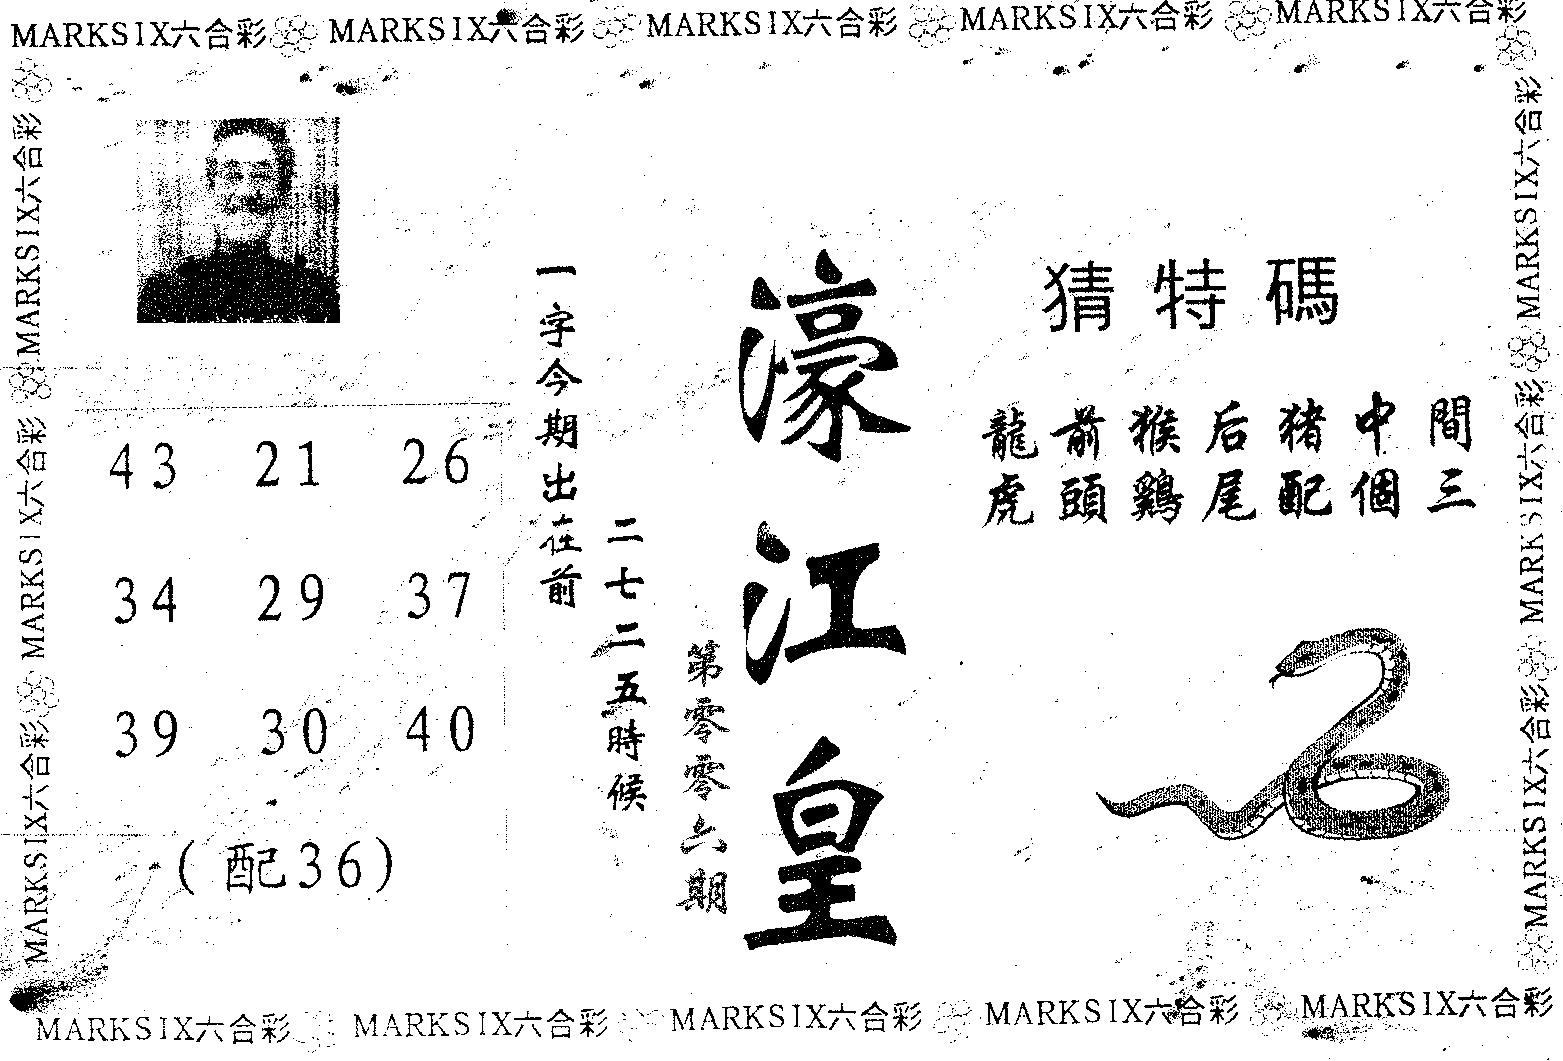 MARKSIX六合彩 MARKSIX六合彩 MARKSIX六合彩 MARKSIX六合彩 MARKSIX六合彩
MARKSIX六合彩
MARKSIX六合彩
MARKSIX六合彩
43 21 26
34 29 37
39 30 40
(配36)
一字今期出在前
二七二五時候
第零零六期
濠江皇
猜特碼
龍前猴后猪中間
虎頭鷄尾配個三
MARKSIX六合彩
MARKSIX六合彩
MARKSIX六合彩
MARKSIX六合彩 MARKSIX六合彩 MARKSIX六合彩 MARKSIX六合彩 MARKSIX六合彩